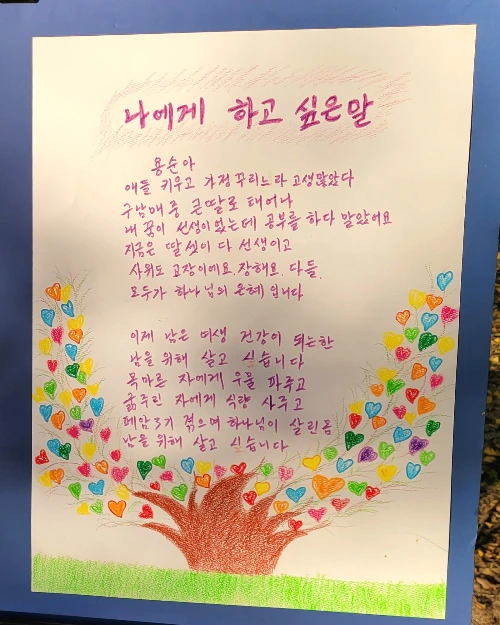 나에게 하고 싶은말
용순아
애들 키우고 가정 꾸리느라 고생많았다
구남매 중 큰딸로 태어나
내 꿈이 선생이 었는데 공부를 하다 말았어요
지금은 딸 셋이 다 선생이고
사위도 교장이에요. 장해요. 다들.
모두가 하나님의 은혜 입니다
이제 남은 여생 건강이 되는한
남을 위해 살고 싶습니다
목마른 자에게 우물 파주고
굶주린 자에게 식량 사주고
폐암3기 겪으며 하나님이 살린몸
남을 위해 살고 싶습니다